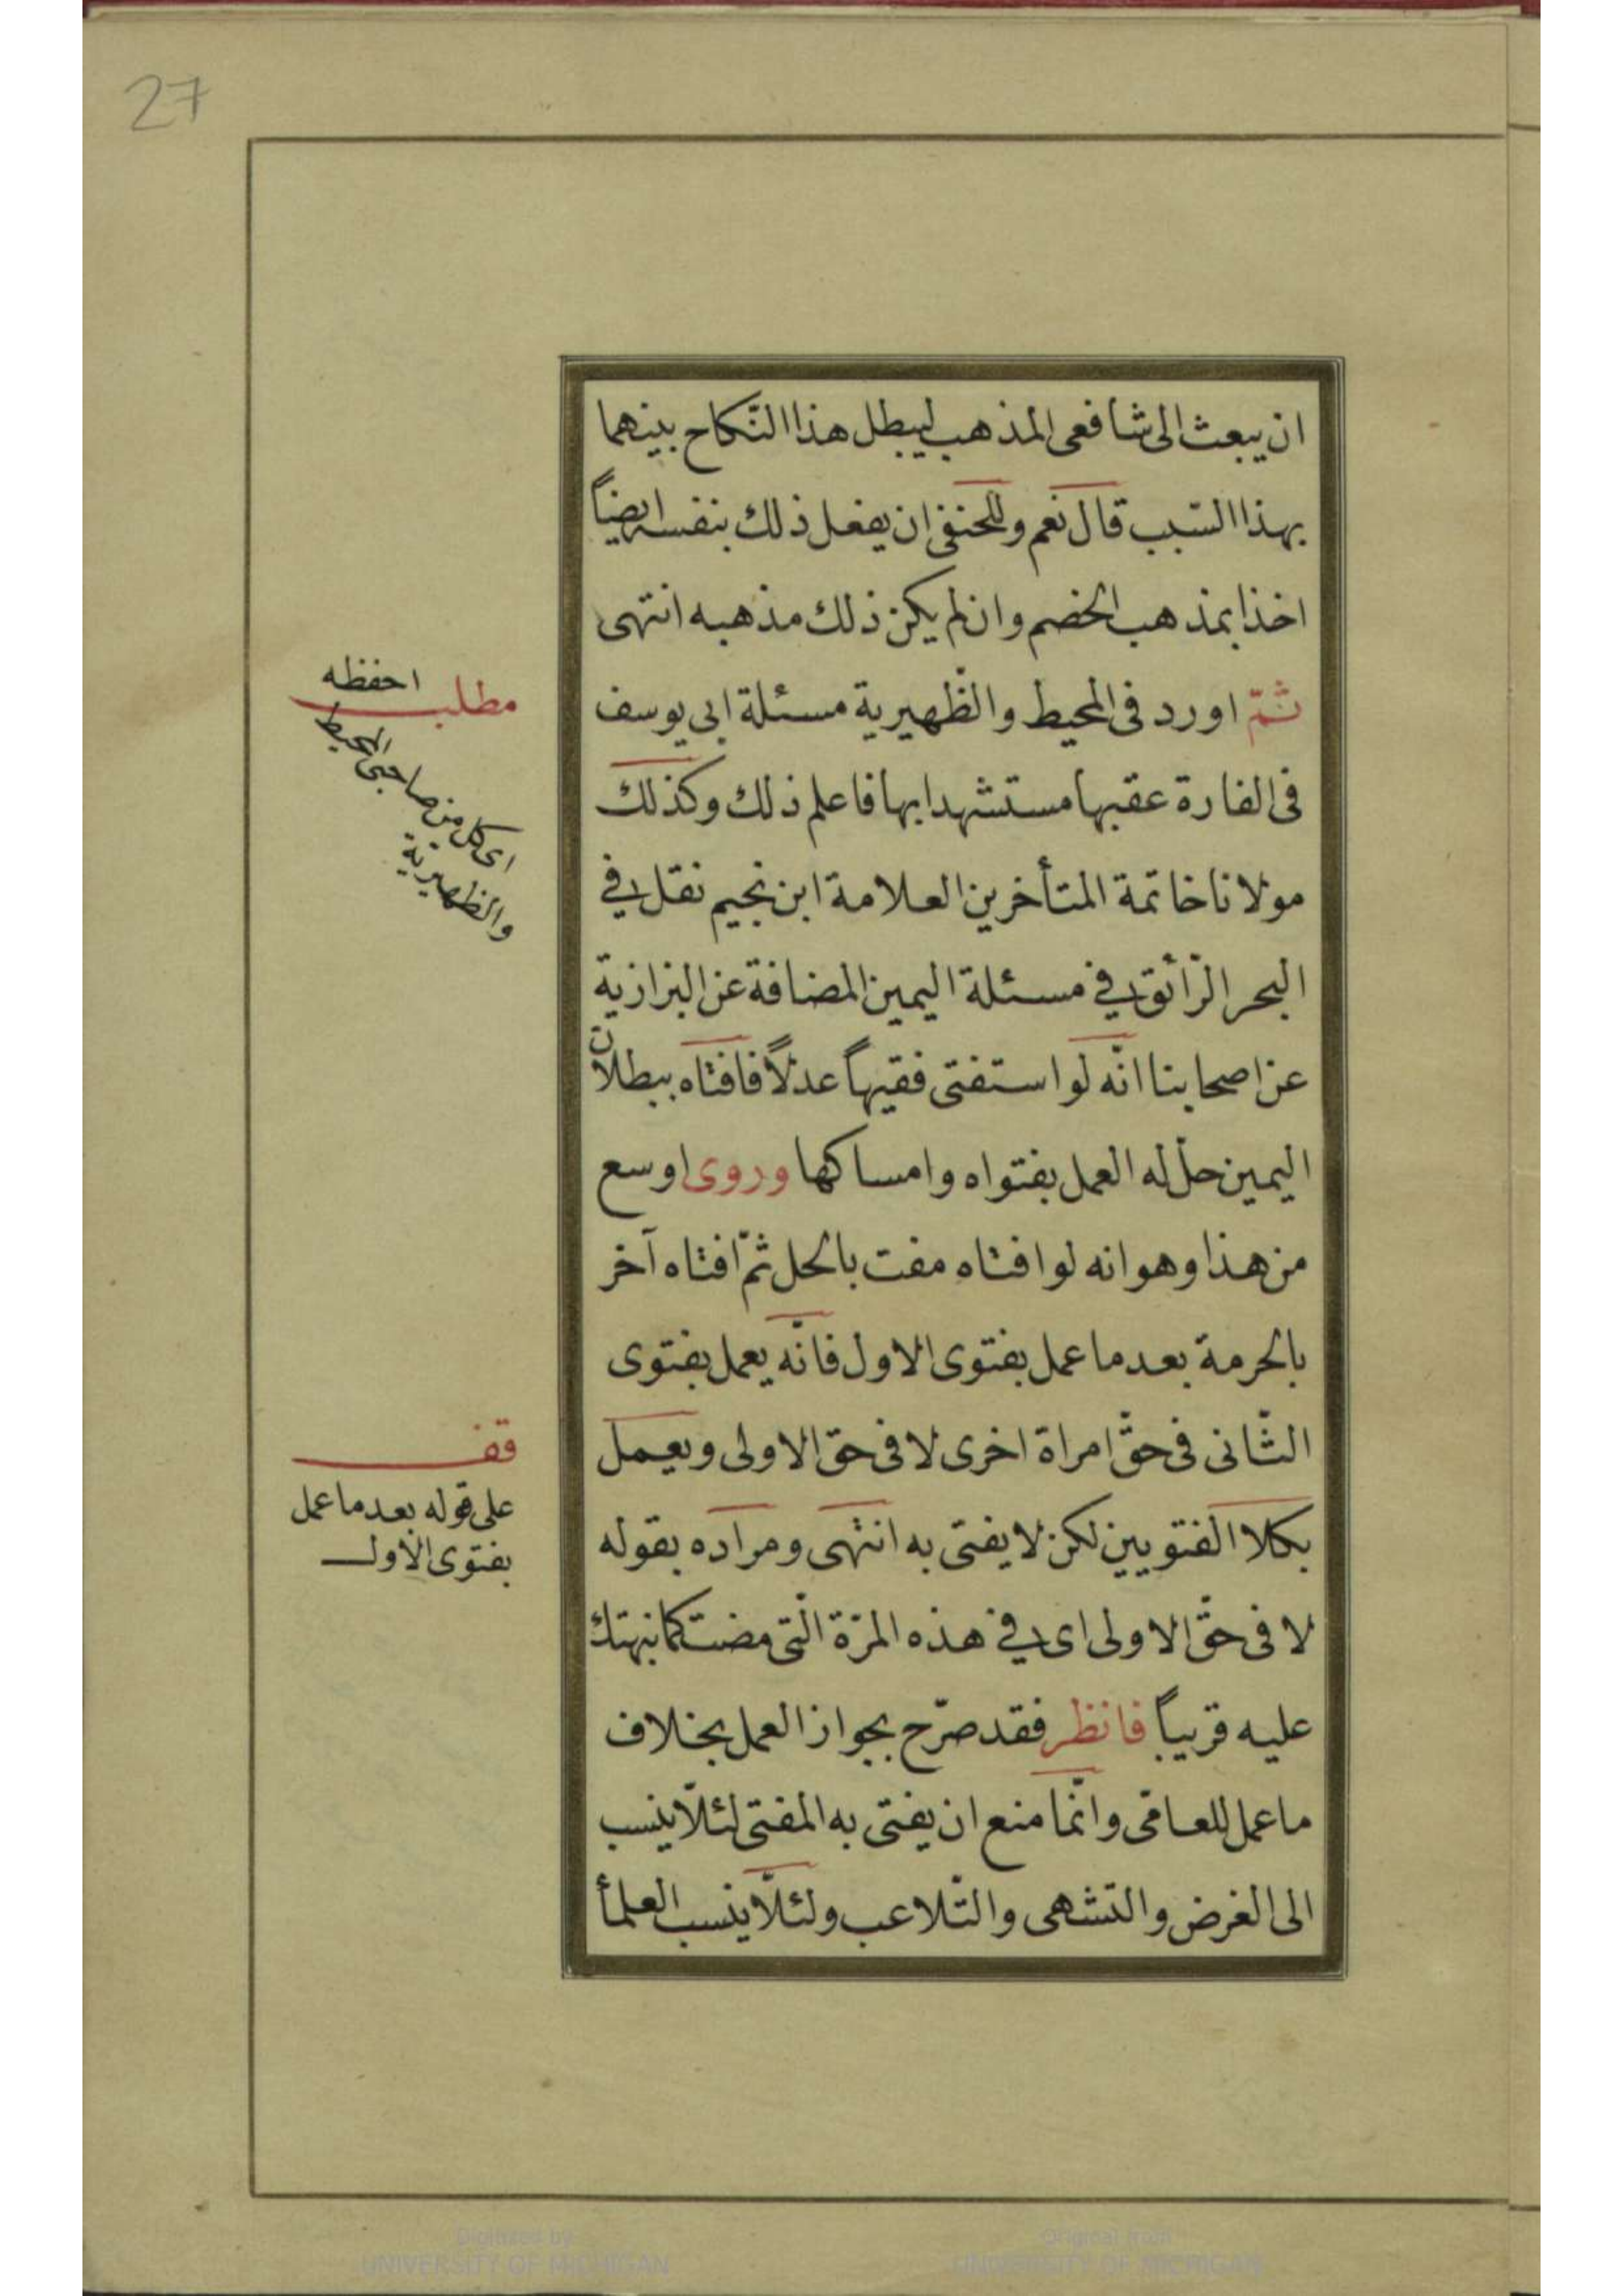 27
ان يبعث الى شافعى المذهب ليبطل هذا النّكاح بينهما
بهذا السّبب قال نعم وللحنفى ان يفعل ذلك بنفسه ايضاً
اخذا بمذهب الخصم وان لم يكن ذلك مذهبه انتهى
ثمّ اورد فى المحيط والظّهيرية مسئلة ابى يوسف
فى الفارة عقبها مستشهدا بها فاعلم ذلك وكذلك
مولانا خاتمة المتأخرين العلامة ابن نجيم نقل فى
البحر الرّائق فى مسئلة اليمين المضافة عن البزازية
عن اصحابنا انّه لو استفتى فقيهاً عدلاً فافتاه ببطلان
اليمين حلّ له العمل بفتواه وامساكها وروى اوسع
من هذا وهو انه لو افتاه مفت بالحل ثمّ افتاه آخر
بالحرمة بعد ما عمل بفتوى الاول فانّه يعمل بفتوى
الثّانى فى حقّ امراة اخرى لا فى حق الاولى ويعمل
بكلا الفتويين لكن لا يفتى به انتهى ومراده بقوله
لا فى حقّ الاولى اى فى هذه المرّة الّتى مضت كما نبهتك
عليه قريباً فانظر فقد صرّح بجواز العمل بخلاف
ما عمل للعامّى وانّما منع ان يفتى به المفتى لئلّا ينسب
الى الغرض والتّشهى والتّلاعب ولئلّا ينسب العلمأ
مطلب احفظه
اى كل من صاحبى المحيط
والظهيرية
قف
على قوله بعد ما عمل
بفتوى الاول
Digitized by
UNIVERSITY OF MICHIGAN
Original from
UNIVERSITY OF MICHIGAN